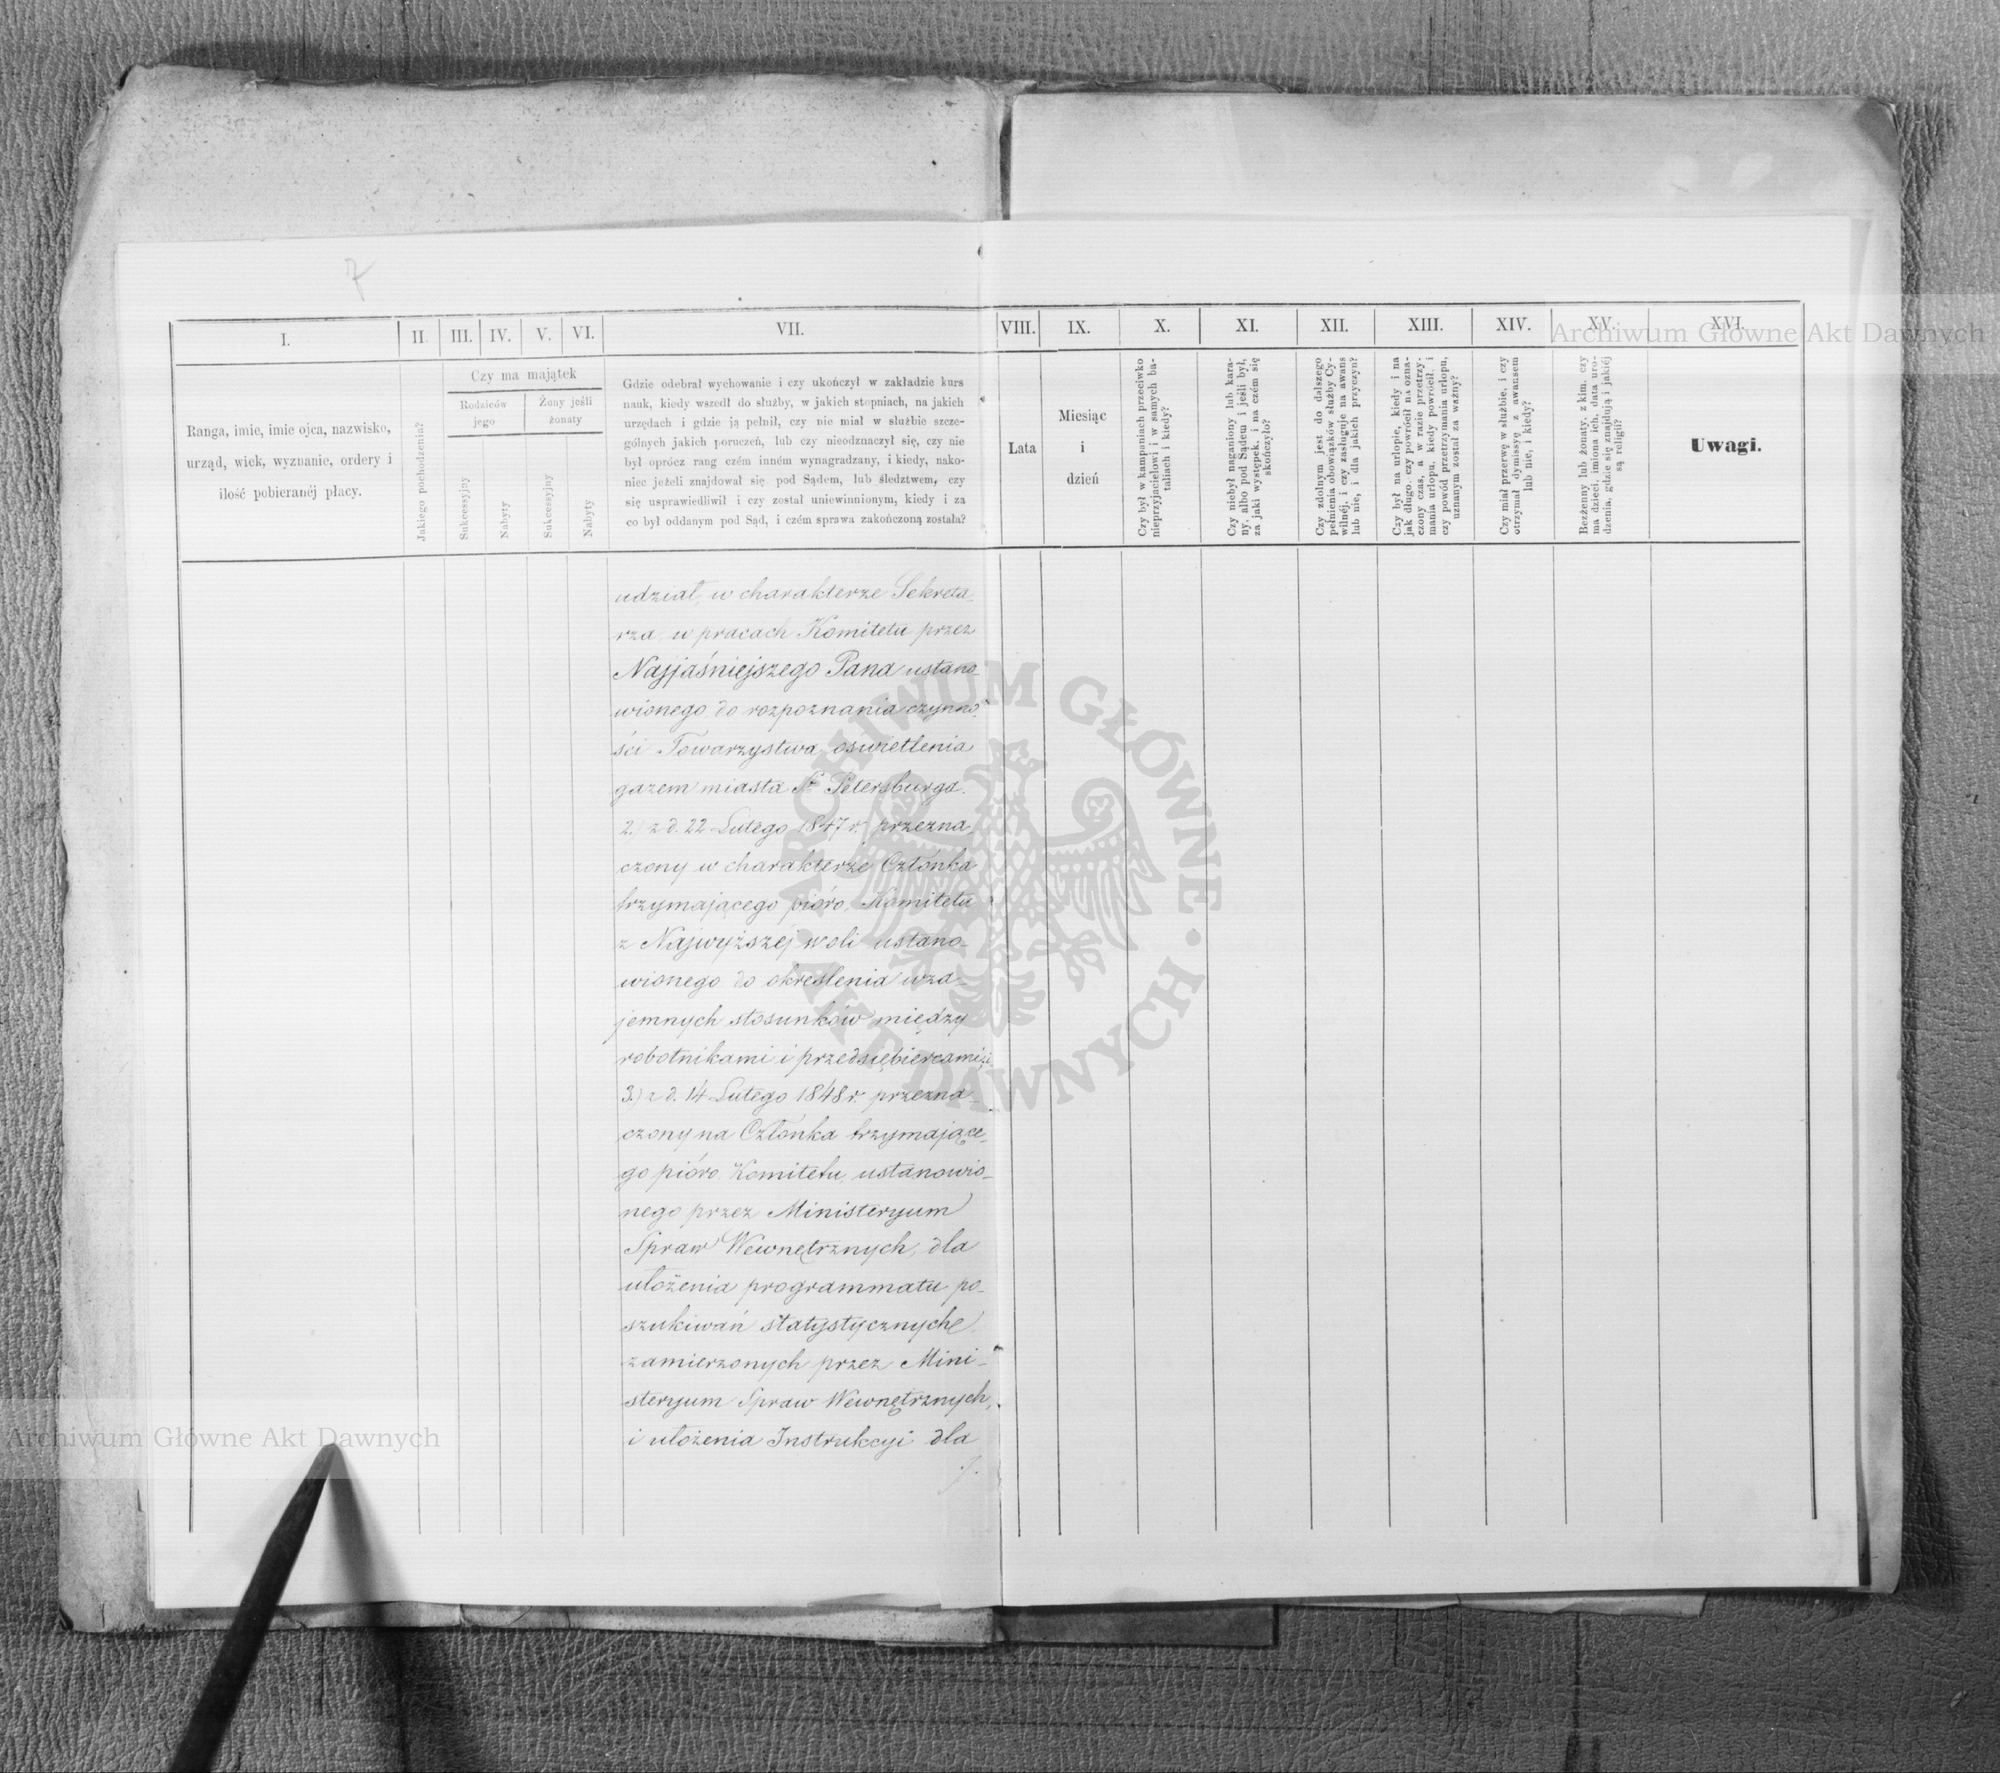 7
I.
II.
III.
IV.
V.
VI.
VII.
VIII.
IX.
X.
XI.
XII.
XIII.
XIV.
XV.
XVI.
Ranga, imie, imie ojca, nazwisko,
urząd, wiek, wyznanie, ordery i
ilość pobieranéj płacy.
Jakiego pochodzenia?
Czy ma majątek
Rodziców
jego
Żony jeśli
żonaty
Sukcessyjny
Nabyty
Sukcessyjny
Nabyty
Gdzie odebrał wychowanie i czy ukończył w zakładzie kurs
nauk, kiedy wszedł do służby, w jakich stopniach, na jakich
urzędach i gdzie ją pełnił, czy nie miał w służbie szcze-
gólnych jakich poruczeń, lub czy nieodznaczył się, czy nie
był oprócz rang czém inném wynagradzany, i kiedy, nako-
niec jeżeli znajdował się pod Sądem, lub śledztwem, czy
się usprawiedliwił i czy został uniewinnionym, kiedy i za
co był oddanym pod Sąd, i czém sprawa zakończoną została?
Lata
Miesiąc
i
dzień
Czy był w kampaniach przeciwko
nieprzyjacielowi i w samych ba-
taliach i kiedy?
Czy niebył naganiony lub kara-
ny, albo pod Sądem i jeśli był,
za jaki występek, i na czém się
skończyło?
Czy zdolnym jest do dalszego
pełnienia obowiązków służby Cy-
wilnéj, i czy zasługuje na awans
lub nie, i dla jakich przyczyn?
Czy był na urlopie, kiedy i na
jak długo, czy powrócił na ozna-
czony czas, a w razie przetrzy-
mania urlopu, kiedy powrócił, i
czy powód przetrzymania urlopu,
uznanym został za ważny?
Czy miał przerwę w służbie, i czy
otrzymał dymissyę z awansem
lub nie, i kiedy?
Bezżenny lub żonaty, z kim, czy
ma dzieci, imiona ich, data uro-
dzenia, gdzie się znajdują i jakiéj
są religii?
Uwagi.
udział, w charakterze Sekreta-
rza, w pracach Komitetu przez
Najjaśniejszego Pana ustano-
wionego do rozpoznania czynno-
ści Towarzystwa oswietlenia
gazem miasta St Petersburga.
2.) z d. 22 Lutego 1847 r. przezna-
czony w charakterze Członka
trzymającego pióro, Komitetu
z Najwyższéj woli ustano-
wionego do okreslenia wza-
jemnych stosunków między
robotnikami i przedsiębiercami;
3.) z d. 14 Lutego 1848 r. przezna-
czony na Członka trzymające-
go pióro Komitetu, ustanowio-
nego przez Ministeryum
Spraw Wewnętrznych, dla
ułożenia programmatu po-
szukiwań statystycznych
zamierzonych przez Mini-
steryum Spraw Wewnętrznych,
i ułożenia Instrukcyi dla
./.
Archiwum Główne Akt Dawnych
Archiwum Główne Akt Dawnych
ARCHIWUM GŁÓWNE · AKT DAWNYCH ·